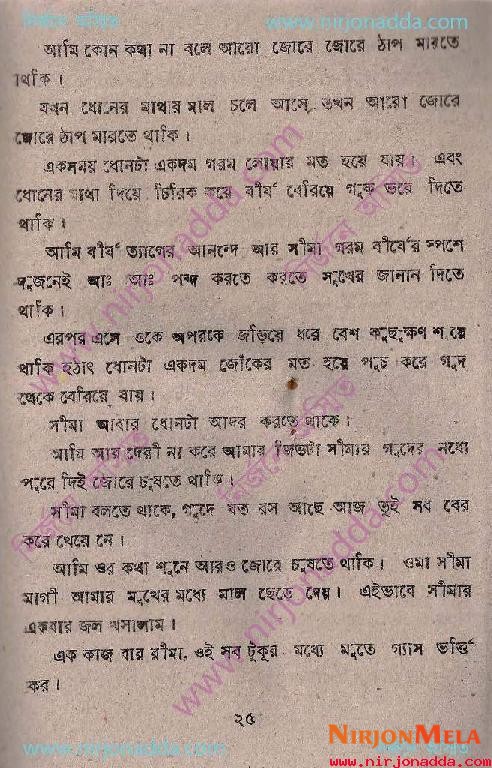 নির্জনে আসিত www.nirjonadda.com
আমি কোন কথা না বলে আরো জোরে জোরে ঠাপ মারতে
থাকি।
যখন ধোনের মাথার মাল চলে আসে, তখন আরো জোরে
জোরে ঠাপ মারতে থাকি।
একসময় ধোনটা একদম গরম লোহার মত হয়ে যায়। এবং
ধোনের মাথা দিয়ে চিরিক করে বীর্য বেরিয়ে গুদ ভরে দিতে
থাকি।
আমি বীর্য ত্যাগের আনন্দে আর সীমা গরম বীর্যের স্পর্শে
দুজনেই আঃ আঃ শব্দ করতে করতে সুখের জানান দিতে
থাকি।
এরপর এসে ওকে অপরকে জড়িয়ে ধরে বেশ কিছুক্ষণ শুয়ে
থাকি হঠাৎ ধোনটা একদম জোঁকের মত হয়ে পুচ করে গুদ
থেকে বেরিয়ে যায়।
সীমা আবার ধোনটা আদর করতে থাকে।
আমি আর দেরী না করে আমার জিভটা সীমার গুদের মধ্যে
পুরে দিই জোরে চুষতে থাকি।
সীমা বলতে থাকে, গুদে যত রস আছে আজ তুই সব বের
করে খেয়ে নে।
আমি ওর কথা শুনে আরও জোরে চুষতে থাকি। ওমা সীমা
মাগী আমার মুখের মধ্যে মাল ছেড়ে দেয়। এইভাবে সীমার
একবার জল খসালাম।
এক কাজ বার সীমা, ওই সব টুকুর মধ্যে মুতে গ্যাস ভর্ত্তি
কর।
২৫
NIRJONMELA
www.nirjonadda.com
www.nirjonadda.com